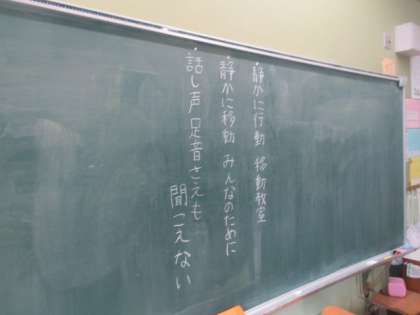 ・静かに行動 移動教室
・静かに移動 みんなのために
・話し声 足音さえも
聞こえない